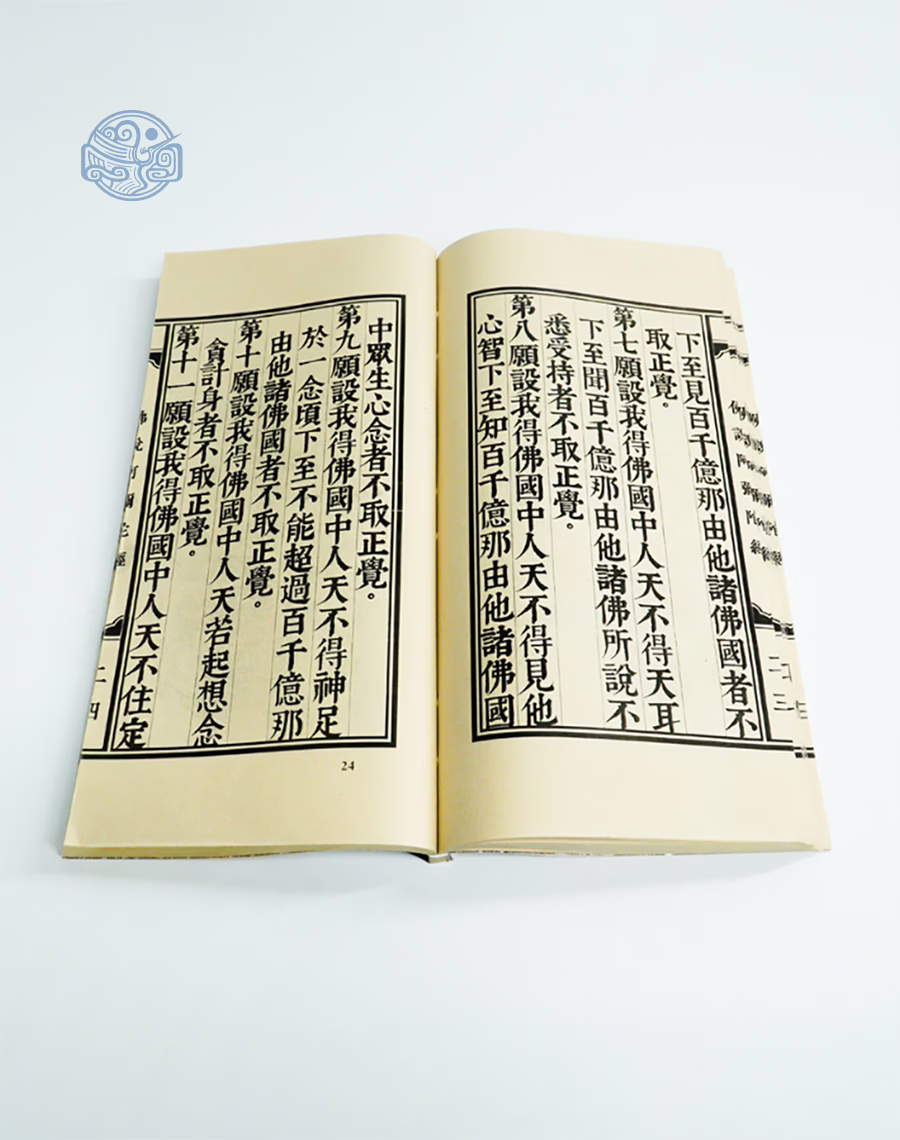 下至見百千億那由他諸佛國者不
取正覺。
第七願設我得佛國中人天不得天耳
下至聞百千億那由他諸佛所說不
悉受持者不取正覺。
第八願設我得佛國中人天不得見他
心智下至知百千億那由他諸佛國
二三
中眾生心念者不取正覺。
第九願設我得佛國中人天不得神足
於一念頃下至不能超過百千億那
由他諸佛國者不取正覺。
第十願設我得佛國中人天若起想念
貪計身者不取正覺。
第十一願設我得佛國中人天不住定
佛說阿彌陀經
二四
24